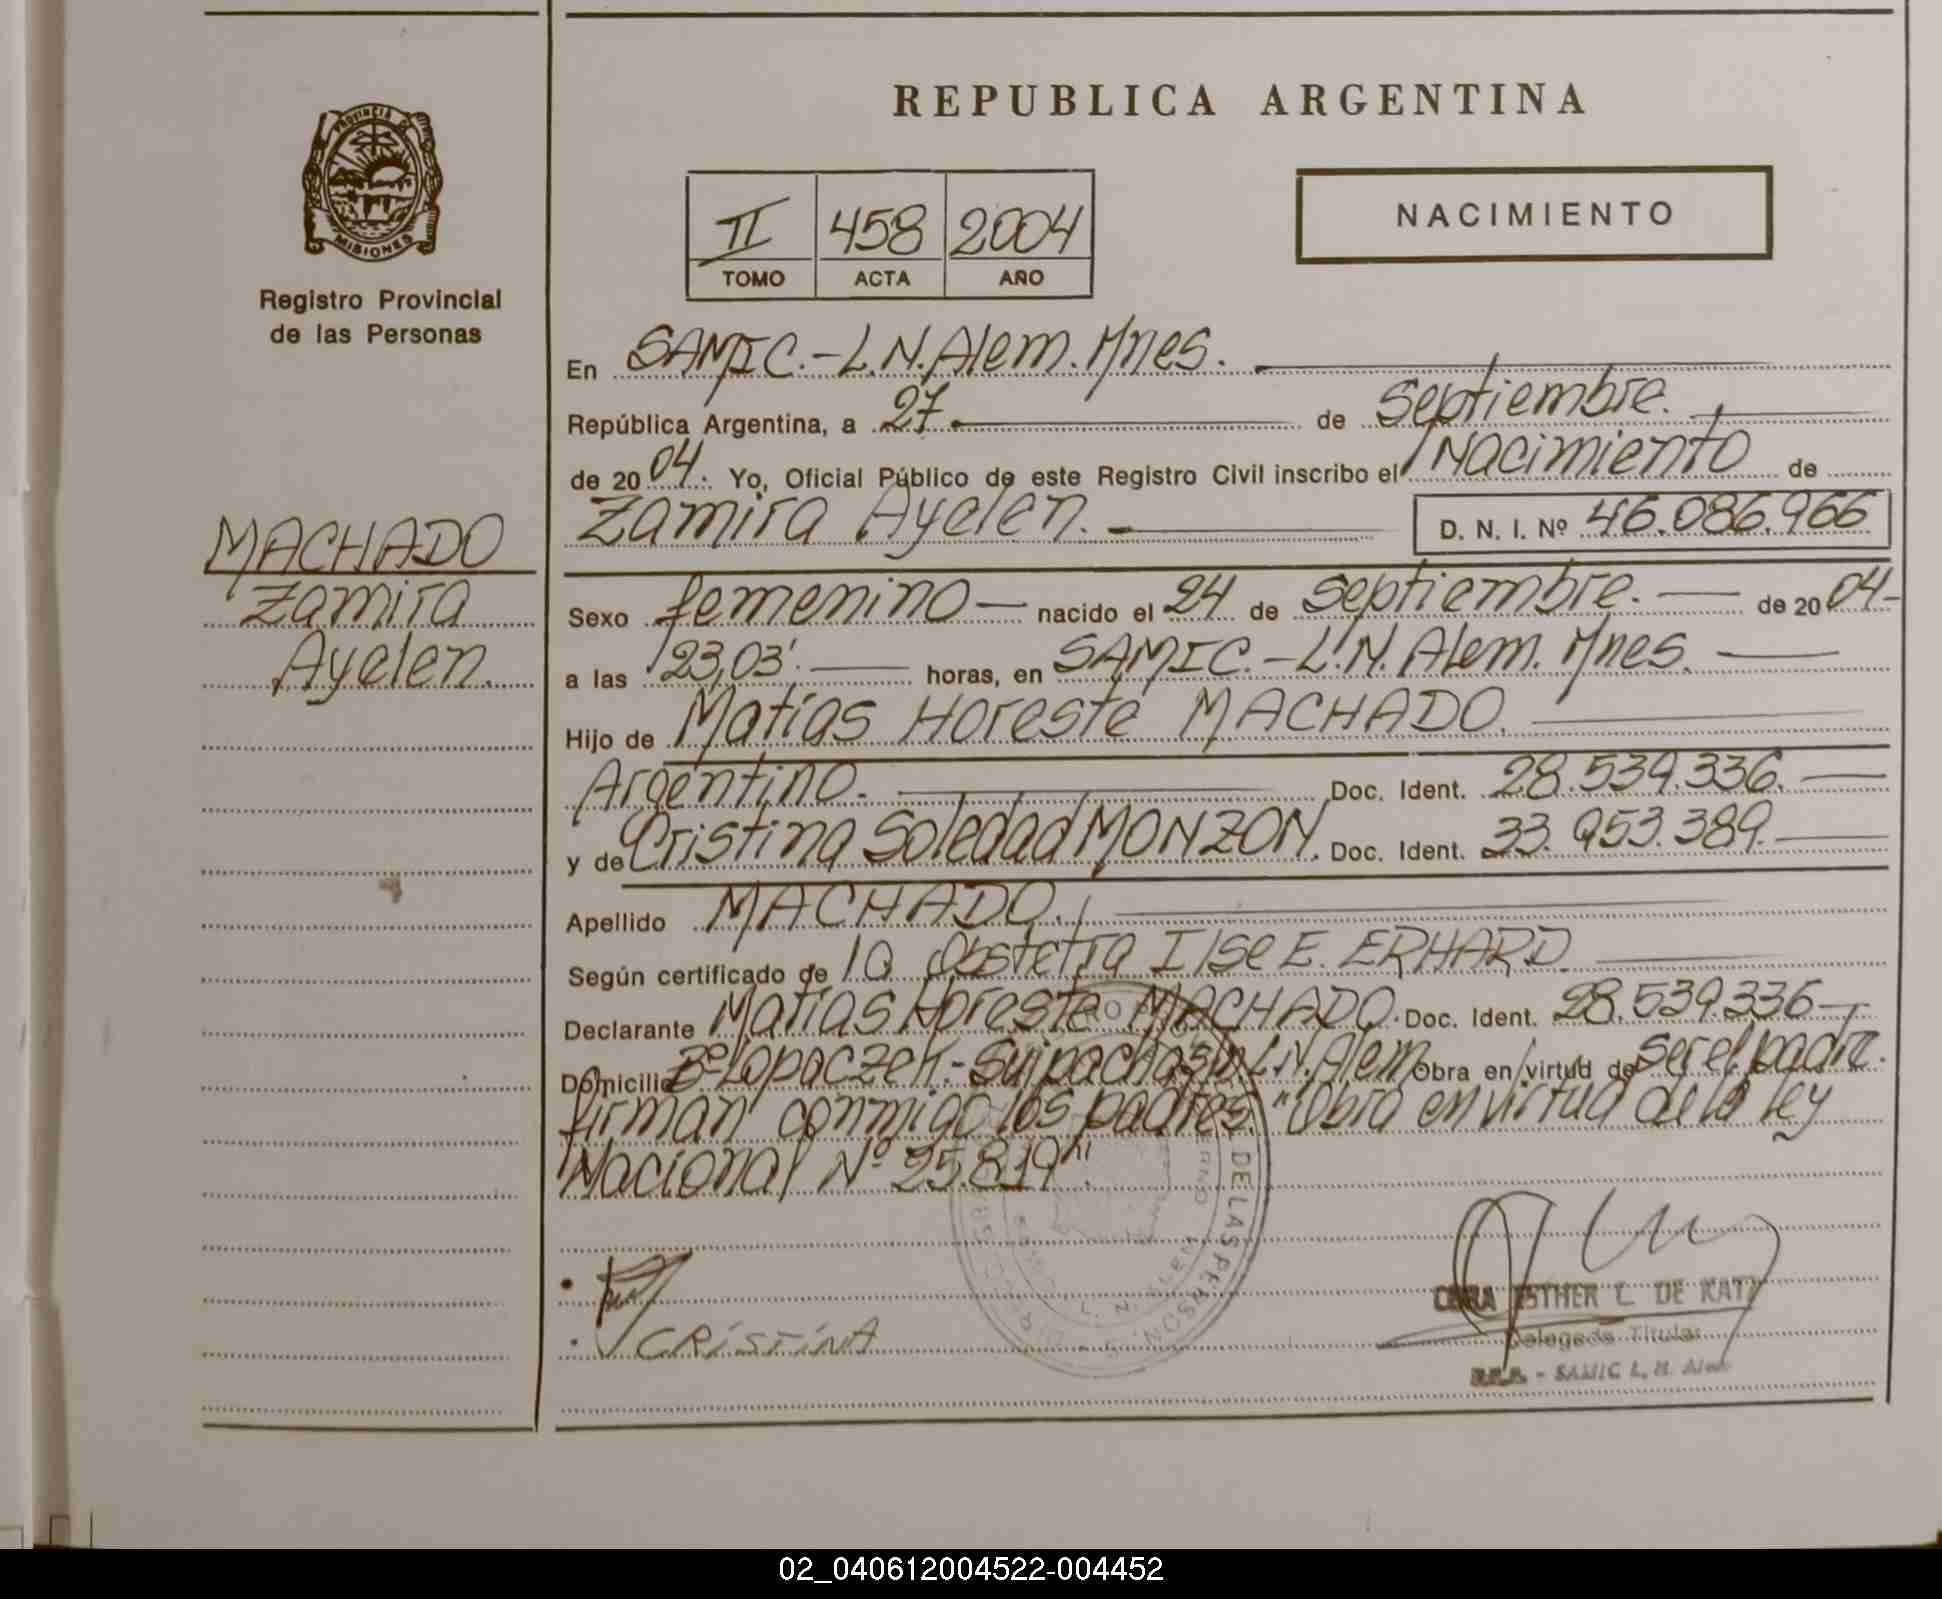 REPUBLICA ARGENTINA
PROVINCIA DE
MISIONES
Registro Provincial
de las Personas
II 458 2004
TOMO ACTA AÑO
NACIMIENTO
En SAMIC.-L.N.Alem.Mnes.
República Argentina, a 27 de Septiembre.
de 2004. Yo, Oficial Público de este Registro Civil inscribo el Nacimiento de
Zamira Ayelen. D. N. I. Nº 46.086.966
MACHADO
Zamira
Ayelen.
Sexo femenino nacido el 24 de Septiembre. de 2004-
a las 23,03'. horas, en SAMIC.-L.N.Alem.Mnes.
Hijo de Matías Horeste MACHADO.
Argentino. Doc. Ident. 28.539.336.
y de Cristina Soledad MONZON. Doc. Ident. 33.953.389.
Apellido MACHADO.
Según certificado de la Obstetra Ilse E. ERHARD.
Declarante Matías Horeste MACHADO. Doc. Ident. 28.539.336
Domicilio Bº Lopaczek.-Suipacha s/n L.N.Alem Obra en virtud de ser el padre.
firman conmigo los padres. "Obra en virtud de la ley
Nacional Nº 25.819"
DE LAS PERSONAS
L. N. ALEM
CRISTINA
ESTHER L. DE KATZ
Delegada Titular
R.P.P. - SAMIC L. N. Alem
02_040612004522-004452